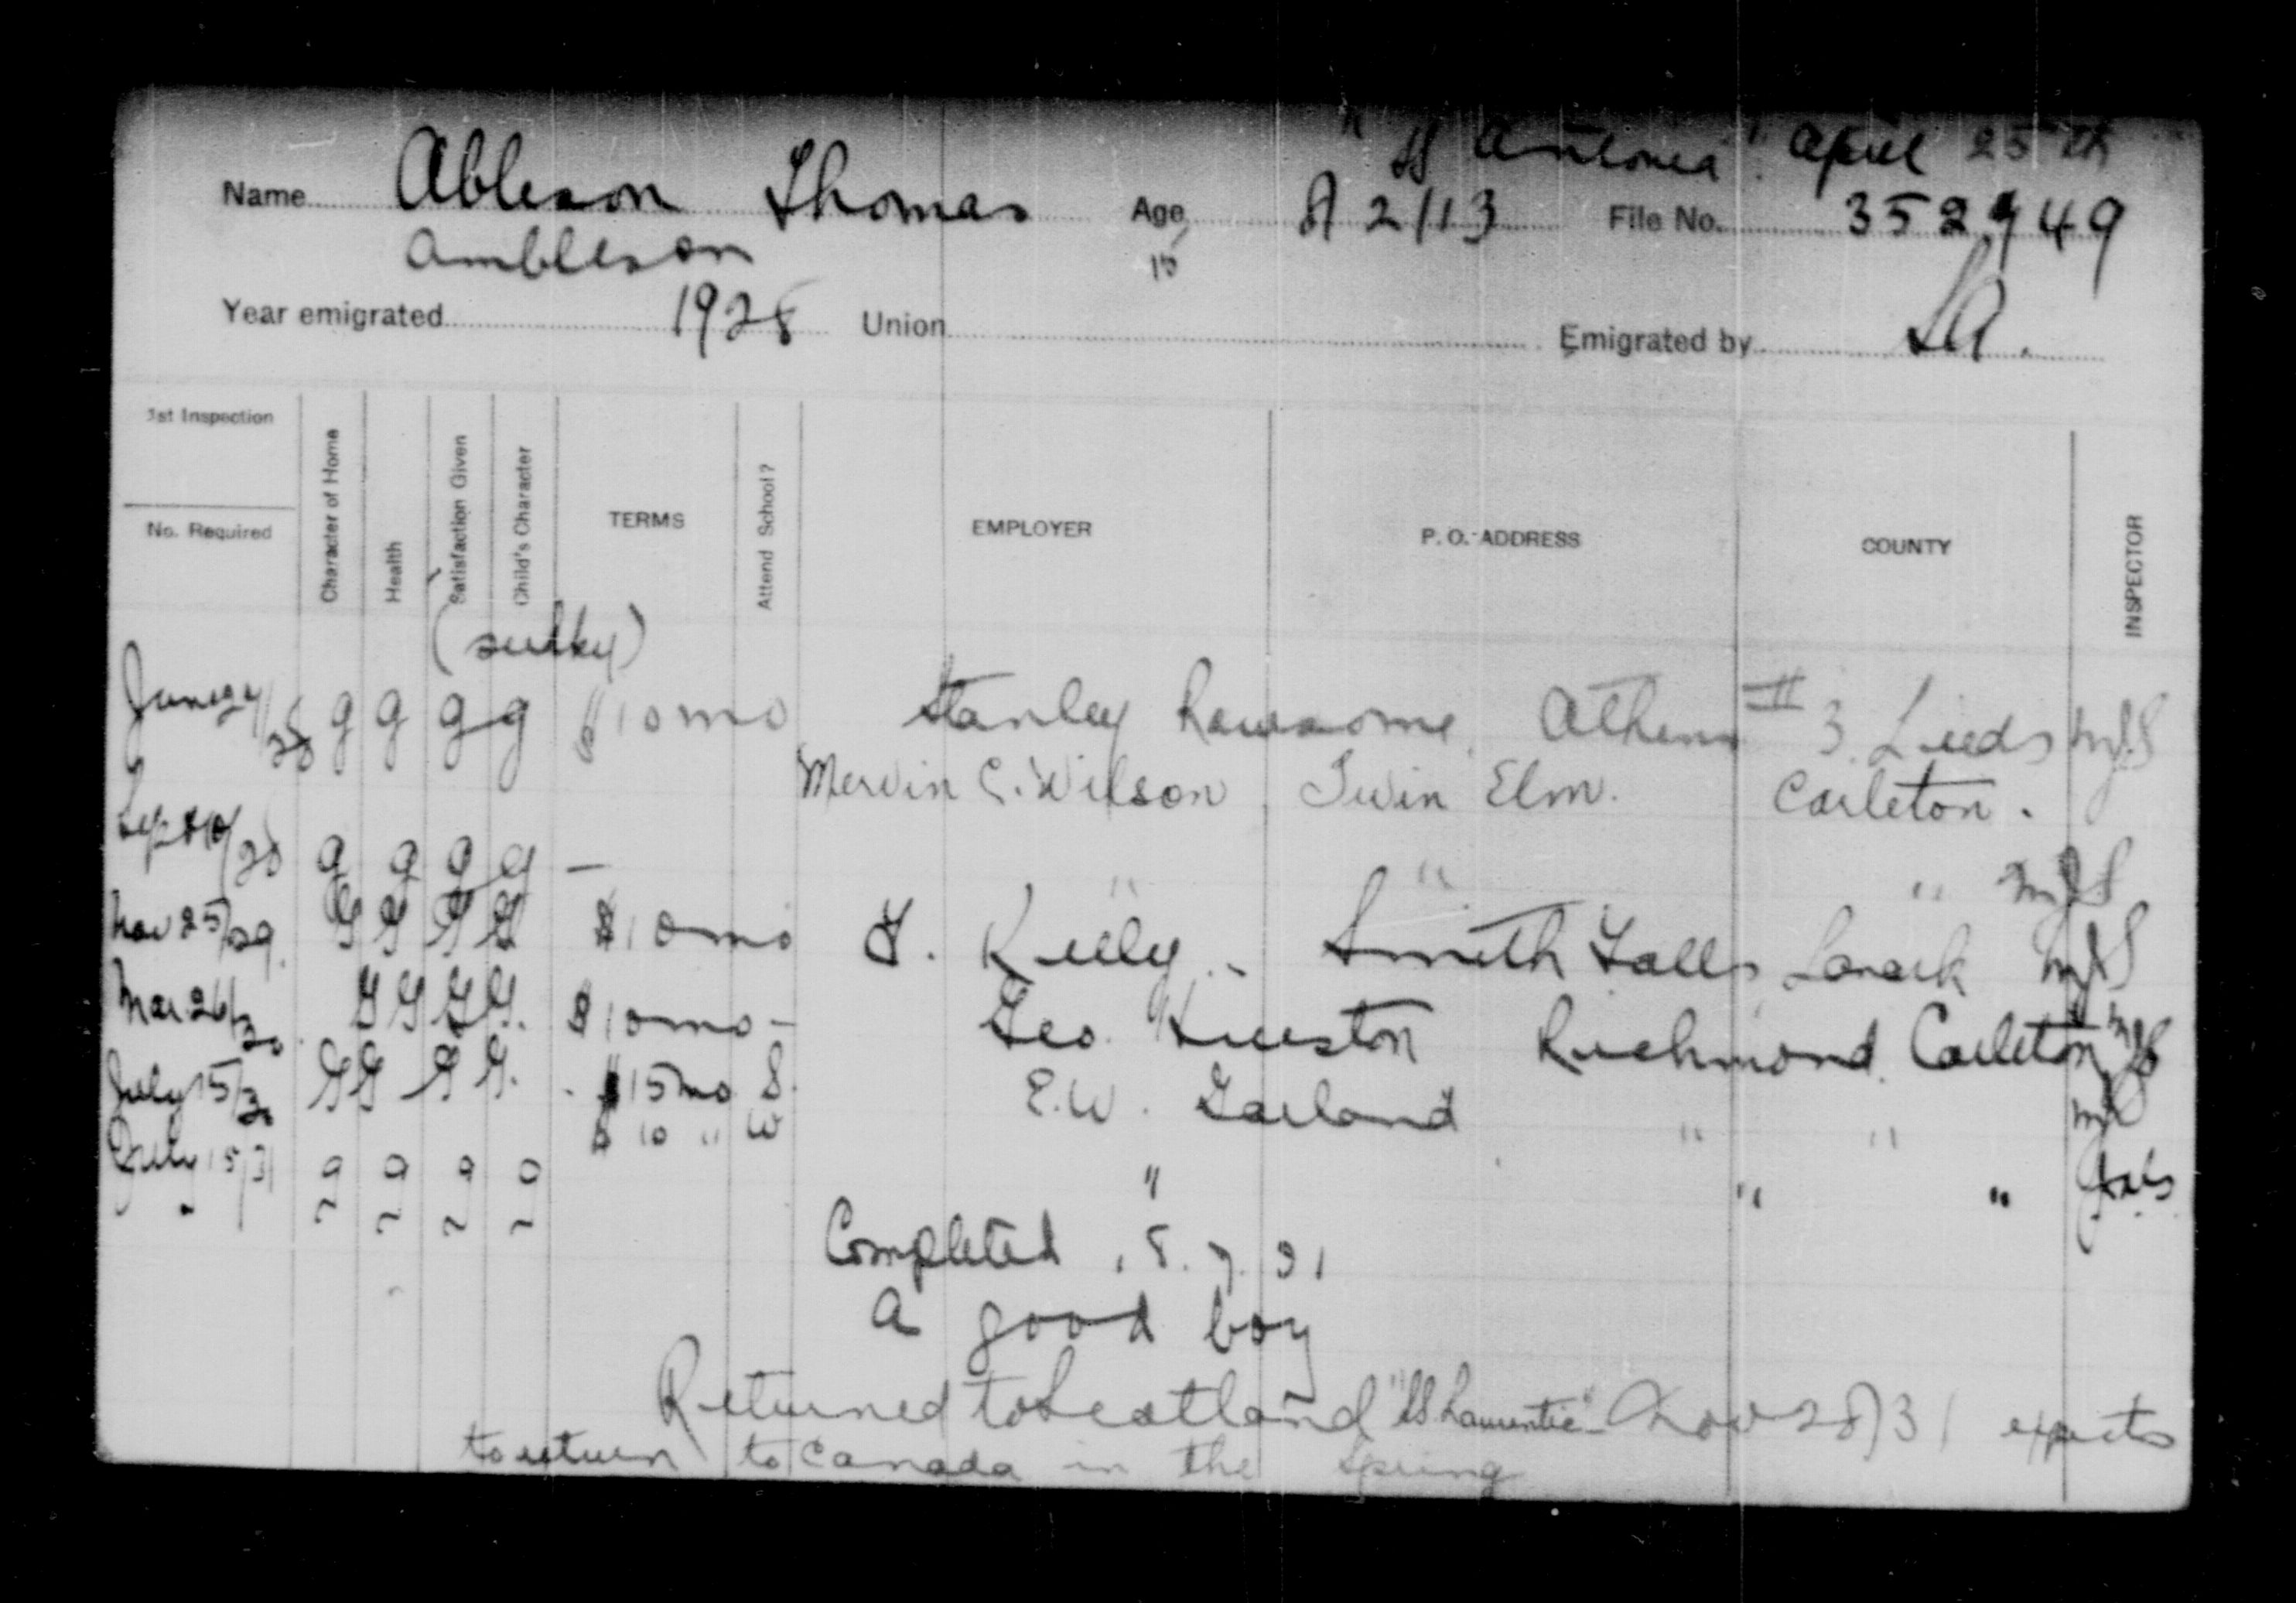 "SS Antonia" April 25th
Name Ableson Thomas Age 2/13 File No. 352949
Ambleson 15
Year emigrated 1928 Union Emigrated by SA.
1st Inspection
No. Required
Character of Home
Health
Satisfaction Given
Child's Character
TERMS
Attend School?
EMPLOYER
P. O. ADDRESS
COUNTY
INSPECTOR
(sulky)
June 28 g g g g $10 mo Stanley Rowsome Athens #3 Leeds
Mervin C. Wilson Twin Elm. Carleton.
28 g g g g — " " "
Nov 25/29. G G G G $10 mo Kelly.. Smith Falls Lanark
Mar 26/30. G G G G. $10 mo - Geo. Richmond. Carleton
July 15/30 G G G G. $15 mo S. E.W. Garland " "
$10 " W
July 15/31 g g g g " " "
Completed 15.7.31
A good boy
Returned to Scotland "SS Laurentic" - Nov 28/31 expects
to return to Canada in the Spring